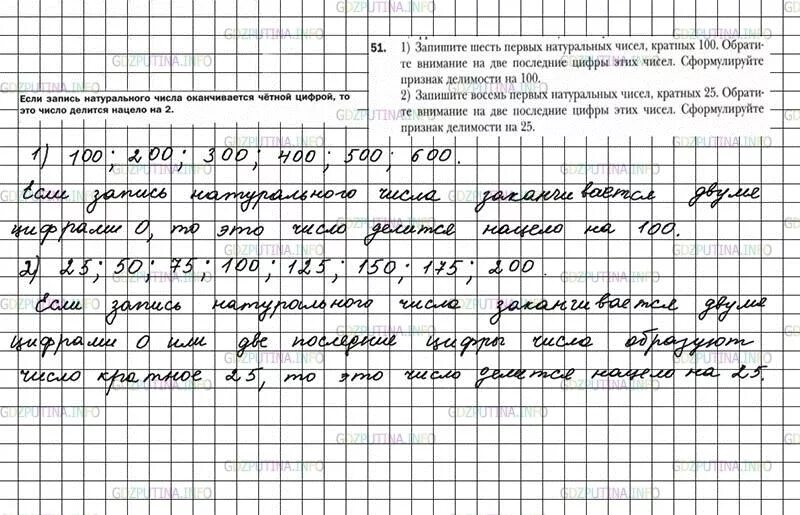 51. 1) Запишите шесть первых натуральных чисел, кратных 100. Обрати-
те внимание на две последние цифры этих чисел. Сформулируйте
признак делимости на 100.
2) Запишите восемь первых натуральных чисел, кратных 25. Обрати-
те внимание на две последние цифры этих чисел. Сформулируйте
признак делимости на 25.
Если запись натурального числа оканчивается чётной цифрой, то
это число делится нацело на 2.
1) 100; 200; 300; 400; 500; 600.
Если запись натурального числа заканчивается двумя
цифрами 0, то это число делится нацело на 100.
2) 25; 50; 75; 100; 125; 150; 175; 200.
Если запись натурального числа заканчивается двумя
цифрами 0 или две последние цифры числа образуют
число кратное 25, то это число делится нацело на 25.
GDZPUTINA.INFO